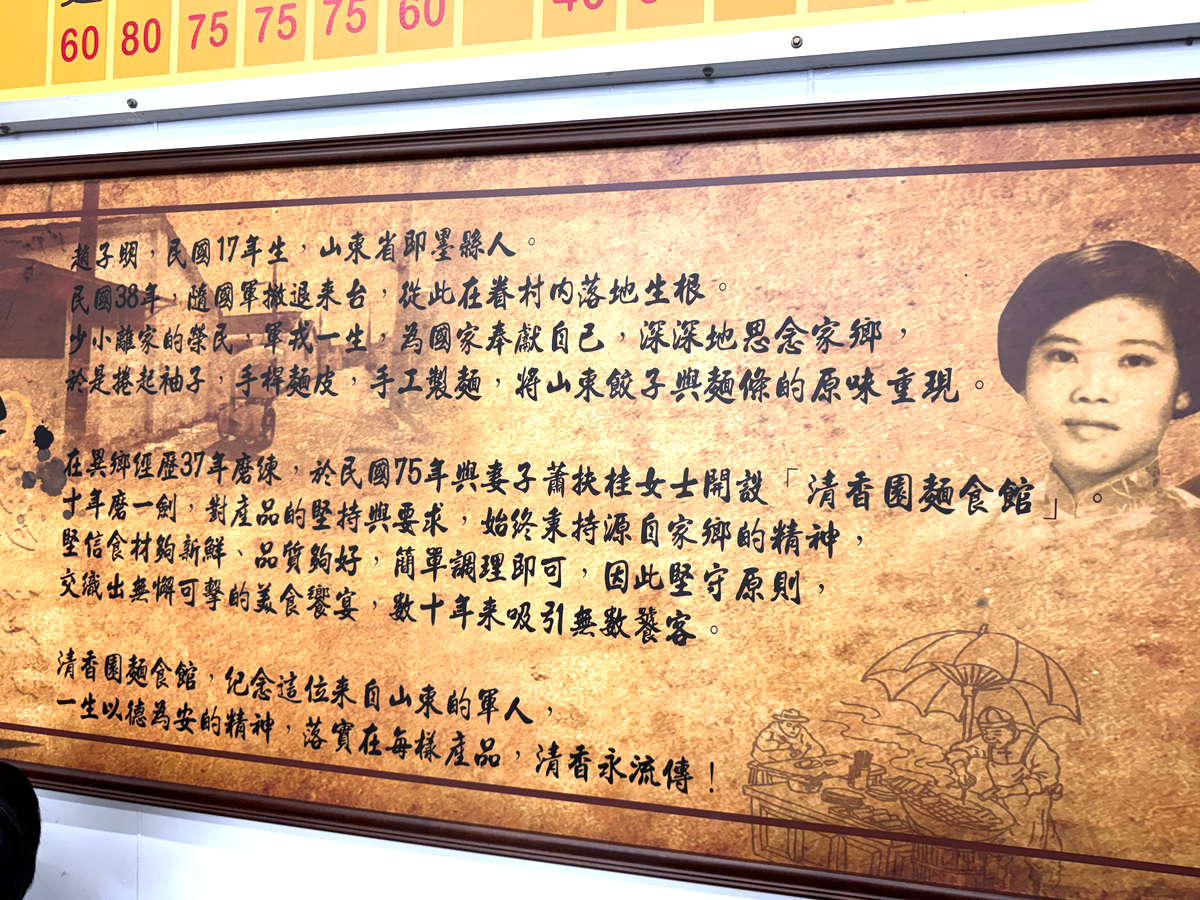 60 80 75 75 75 60
趙子明，民國17年生，山東省即墨縣人。
民國38年，隨國軍撤退來台，從此在眷村內落地生根。
少小離家的榮民，軍戎一生，為國家奉獻自己，深深地思念家鄉，
於是捲起袖子，手桿麵皮，手工製麵，將山東餃子與麵條的原味重現。
在異鄉經歷37年磨練，於民國75年與妻子蕭扶桂女士開設「清香園麵食館」。
十年磨一劍，對產品的堅持與要求，始終秉持源自家鄉的精神，
堅信食材夠新鮮、品質夠好，簡單調理即可，因此堅守原則，
交織出無懈可擊的美食饗宴，數十年來吸引無數饕客。
清香園麵食館，紀念這位來自山東的軍人，
一生以德為安的精神，落實在每樣產品，清香永流傳！